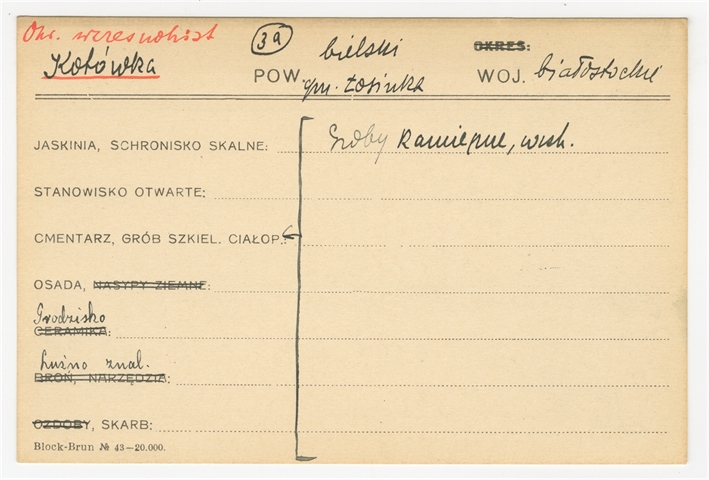 Okr. wczesnohist
39
Kotówka
bielski
OKRES:
POW.
gm. Łosinka
WOJ. białostockie
JASKINIA, SCHRONISKO SKALNE:
Groby kamienne, wcsh.
STANOWISKO OTWARTE:
CMENTARZ, GRÓB SZKIEL. CIAŁOP.:
OSADA, NASYPY ZIEMNE:
Grodzisko
CERAMIKA:
Luźno znal.
BROŃ, NARZĘDZIA:
OZDOBY, SKARB:
Block-Brun № 43—20.000.